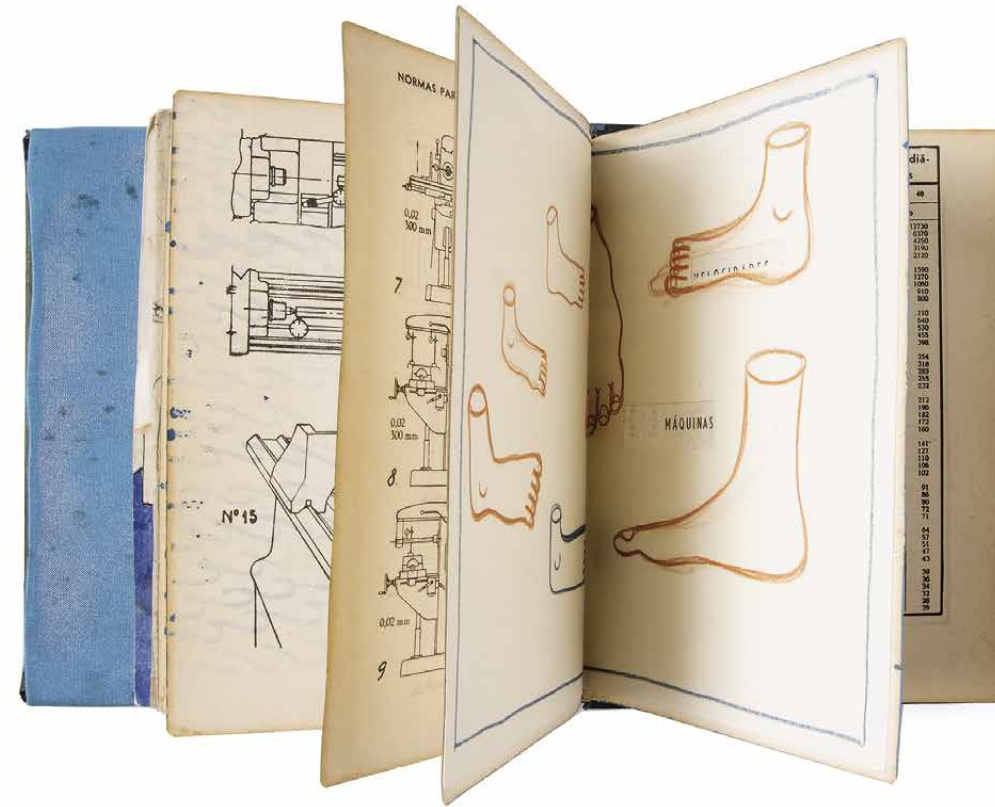 Nº 15
NORMAS PAR
0,02
300 mm
7
0,02
300 mm
8
0,02 mm
9
VELOCIDADES
MÁQUINAS
diâ-
s
40
12730
6370
4250
3190
2120
1590
1270
1060
910
800
710
640
530
455
398
354
318
283
255
232
212
196
182
172
160
141
127
110
106
102
91
86
80
72
71
64
57
51
47
43
39
36
34
32
28
26